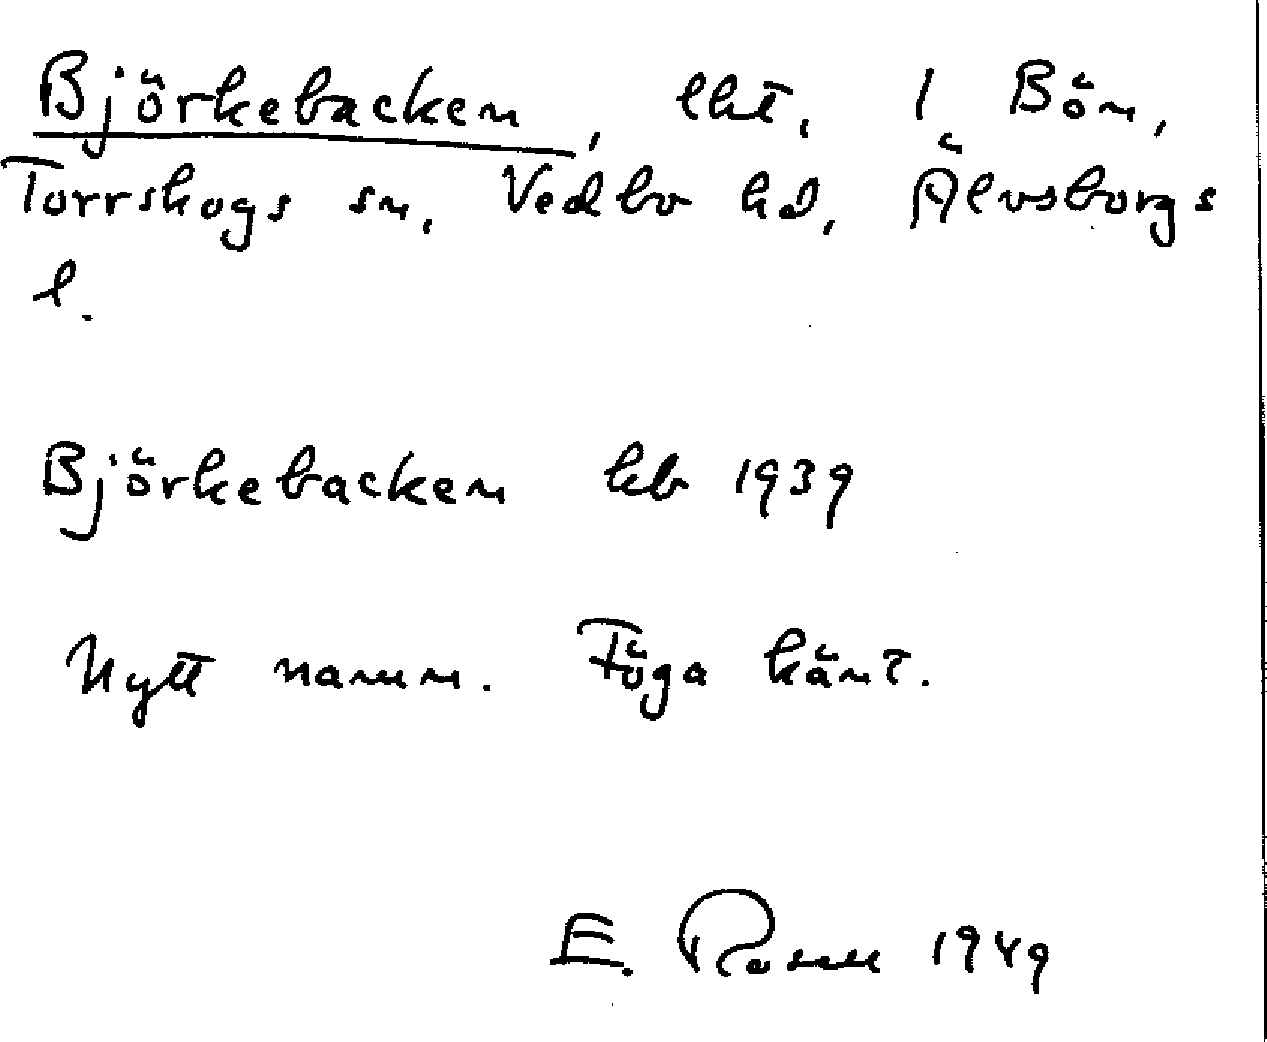 Björkebacken, lht, 1 Bön,
Torrskogs sn, Vedbo hd, Älvsborgs
l.
Björkebacken kb 1939
Nytt namn. Föga känt.
E. Rosell 1949